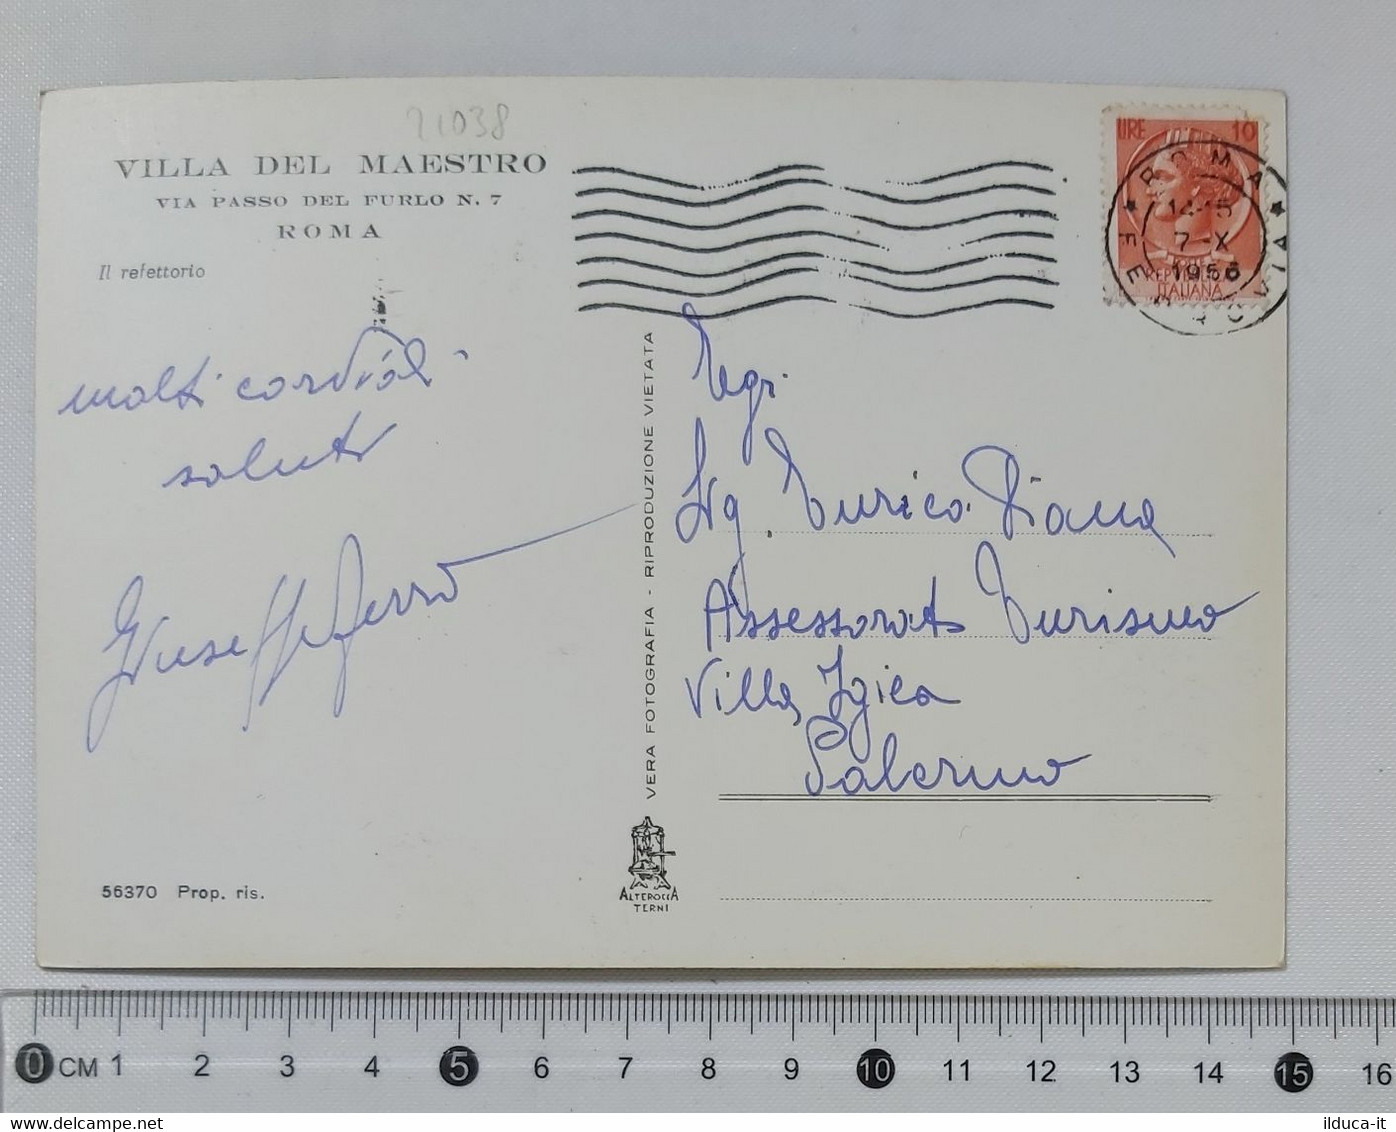 21038
VILLA DEL MAESTRO
VIA PASSO DEL FURLO N. 7
ROMA
Il refettorio
molti cordiali
saluti
Giuseppe Ferro
56370 Prop. ris.
VERA FOTOGRAFIA - RIPRODUZIONE VIETATA
ALTEROCCA
TERNI
LIRE 10
REPUBBLICA
ITALIANA
ROMA FERROVIA
14-15
7-X
1956
Egr.
Sig. Enrico Diana
Assessorato Turismo
Villa Igiea
Palermo
0 CM 1 2 3 4 5 6 7 8 9 10 11 12 13 14 15 16
www.delcampe.net
ilduca-it